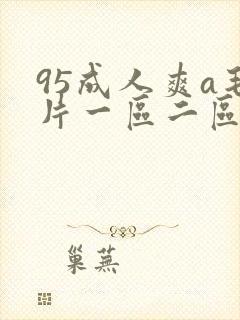 95成人爽a毛
片一區二區
巢蕪